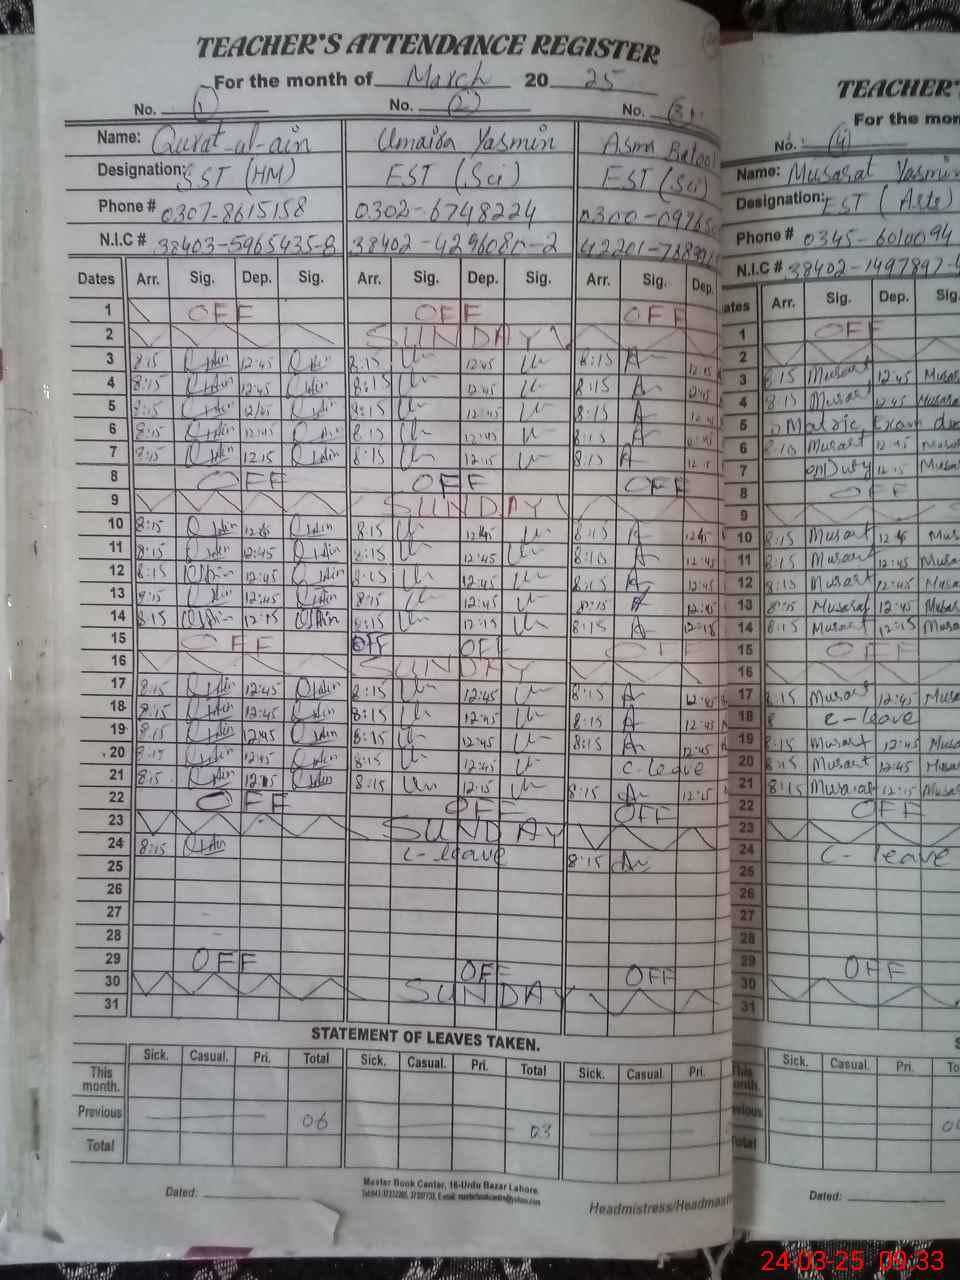 TEACHER'S ATTENDANCE REGISTER
For the month of March 20 25
No. (1) No. (2) No. (3)
Name: Qurat-ul-ain Umaira Yasmin Asma Batool
Designation: SST (HM) EST (Sci) EST (Sci)
Phone # 0307-8615158 0302-6748224 0300-09765
N.I.C # 38403-5965435-8 38402-4296080-2 42201-7
Dates Arr. Sig. Dep. Sig. Arr. Sig. Dep. Sig. Arr. Sig. Dep.
1 OFF OFF OFF
2 SUNDAY
3 8:15 12:45 8:15 12:45 8:15 12:45
4 8:15 12:45 8:15 12:45 8:15 12:45
5 8:15 12:45 8:15 12:45 8:15 12:45
6 8:15 12:45 8:15 12:45 8:15 12:45
7 8:15 12:15 8:15 12:15 8:15 12:15
8 OFF OFF OFF
9 SUNDAY
10 8:15 12:45 8:15 12:45 8:15 12:45
11 8:15 12:45 8:15 12:45 8:15 12:45
12 8:15 12:45 8:15 12:45 8:15 12:45
13 8:15 12:45 8:15 12:45 8:15 12:45
14 8:15 12:15 8:15 12:15 8:15 12:15
15 OFF OFF OFF OFF
16 SUNDAY
17 8:15 12:45 8:15 12:45 8:15 12:45
18 8:15 12:45 8:15 12:45 8:15 12:45
19 8:15 12:45 8:15 12:45 8:15 12:45
20 8:15 12:45 8:15 12:45 c-leave
21 8:15 12:15 8:15 12:15 8:15 12:15
22 OFF OFF OFF
23 SUNDAY
24 8:15 c-leave 8:15
25
26
27
28
29 OFF OFF OFF
30 SUNDAY
31
STATEMENT OF LEAVES TAKEN.
Sick. Casual. Pri. Total Sick. Casual. Pri. Total Sick. Casual. Pri.
This month.
Previous 06 03
Total
Dated:
Master Book Center, 16-Urdu Bazar Lahore.
Headmistress/Headmas
TEACHER'
For the mon
No. (4)
Name: Musarat Yasmin
Designation: EST (Arts)
Phone # 0345-6010094
N.I.C # 38402-1497897-
ates Arr. Sig. Dep. Sig.
1 OFF
2
3 8:15 Musarat 12:45 Musa
4 8:15 Musarat 12:45 Musara
5 Matric Exam du
6 8:10 Musarat 12:45 Musa
7 on Duty 12:15 Musa
8 OFF
9
10 8:15 Musarat 12:45 Mus
11 8:15 Musarat 12:45 Musa
12 8:15 Musarat 12:45 Musa
13 8:15 Musarat 12:45 Musa
14 8:15 Musarat 12:15 Musa
15 OFF
16
17 8:15 Musarat 12:45 Musa
18 c-leave
19 8:15 Musarat 12:45 Musa
20 8:15 Musarat 12:45 Musa
21 8:15 Musarat 12:15 Musa
22 OFF
23
24 C-leave
25
26
27
28
29 OFF
30
31
Sick. Casual. Pri. To
This onth.
vious
otal
Dated:
24-03-25 09:33